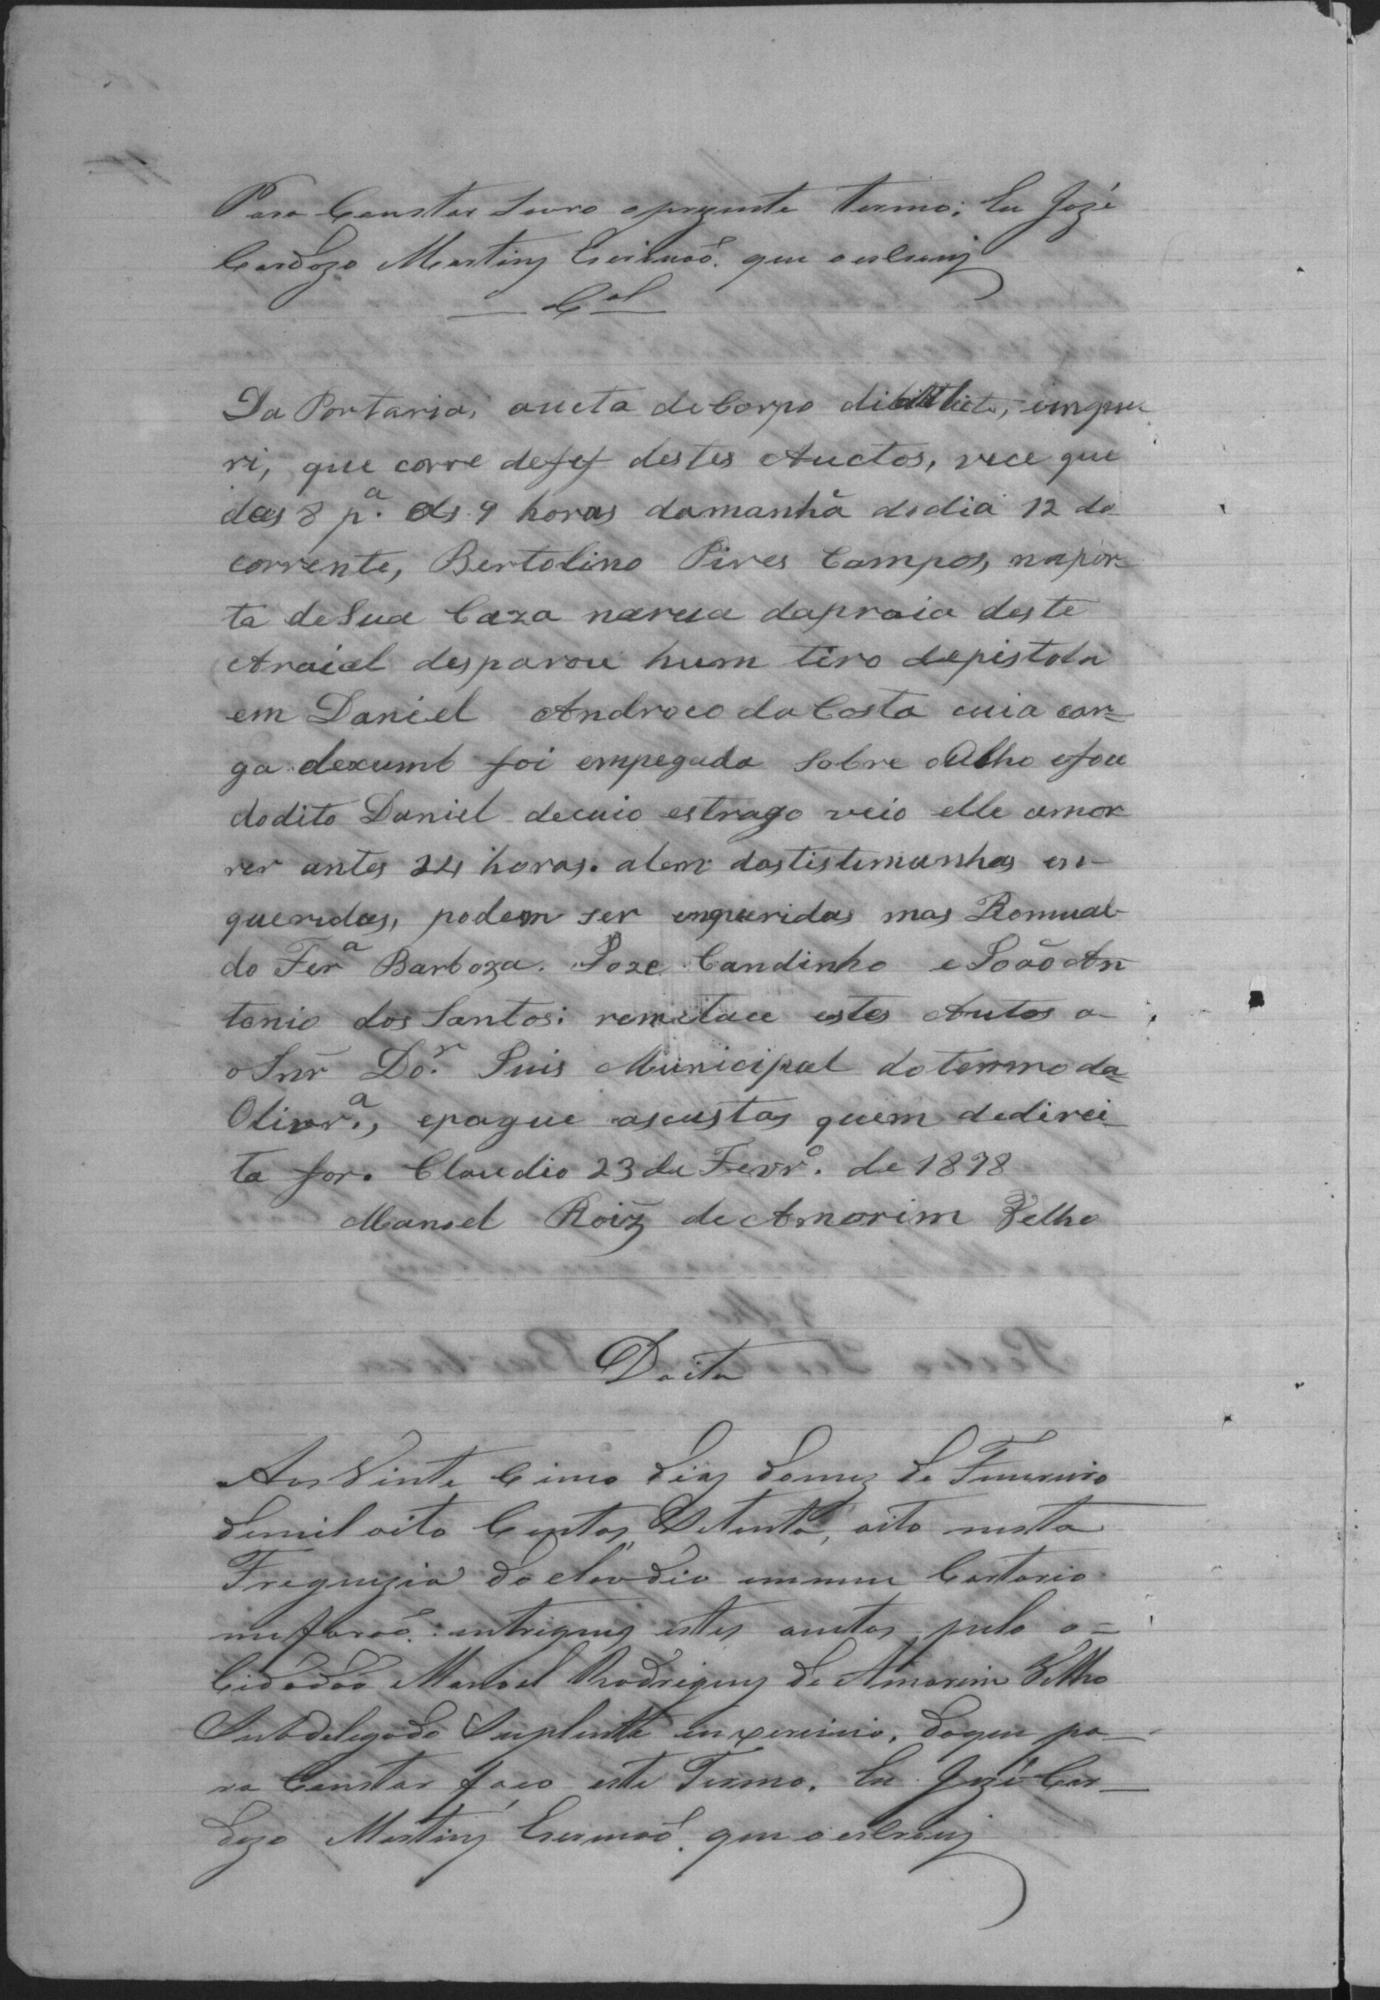 Para Constar Lavro oprezente termo; Eu Jozé
Cardozo Martins Escrivaõ. que o escrevi
Cal
Da Portaria, aucta de Corpo di delicto, imque
ri, que corre de f ef destes Auctos, vece que
das 8 p.ª as 9 horas damanhã dodia 12 do
corrente, Bertolino Pires Campos, napor-
ta de Sua Caza narua dapraia deste
Araial desparou hum tiro depistola
em Daniel Androeo da Costa cuia car=
ga dexumb foi empegada Sobre oUlho efou
dodito Daniel decuio estrago veio elle amor
rer antes 24 horas. alem dastistimunhas en-
queridas, podem ser enqueridas mas Romual-
do Ferª Barboza. Joze Candinho e João An
tonio dos Santos: remetace estes Autos a-
o Snr Do.r Juis Municipal do termo da=
Olivr.ª, epague ascustas quem dedirei-
ta for. Claudio 23 de Fevr.º de 1878
Manoel Roiz de Amorim Velho
Dacta
Aos Vinte Cinco dias domez de Fevereiro
demil oito Centos, Setenta, oito nesta
Freguezia do claudio emmeu Cartorio
meforaõ: entregues estes auctos pelo o=
Cidadaõ Manoel Rodrigues de Amorim Velho
Subdelegado Suplente emxercicio, doque pa-
ra Constar faço este Termo. Eu Jozé Car-
dozo Martins Escrivaõ. que o escrevi